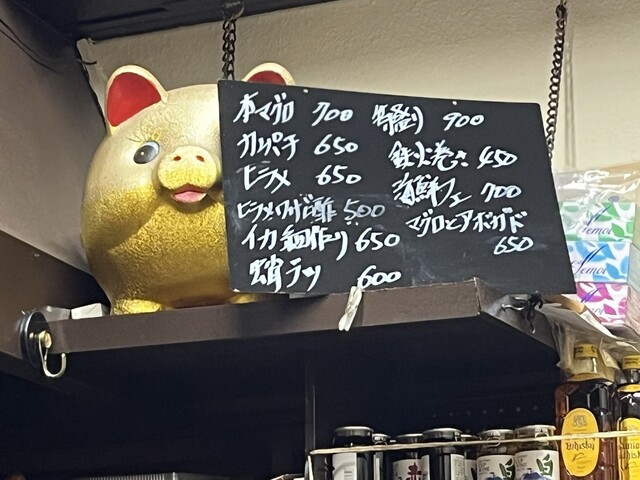 本マグロ 700
カンパチ 650
ヒラメ 650
ヒラメワサビ酢 500
イカ細作り 650
蛸ブツ 600
特盛り 900
鉄火巻 450
海鮮フェ 700
マグロとアボガド
650
Whisky